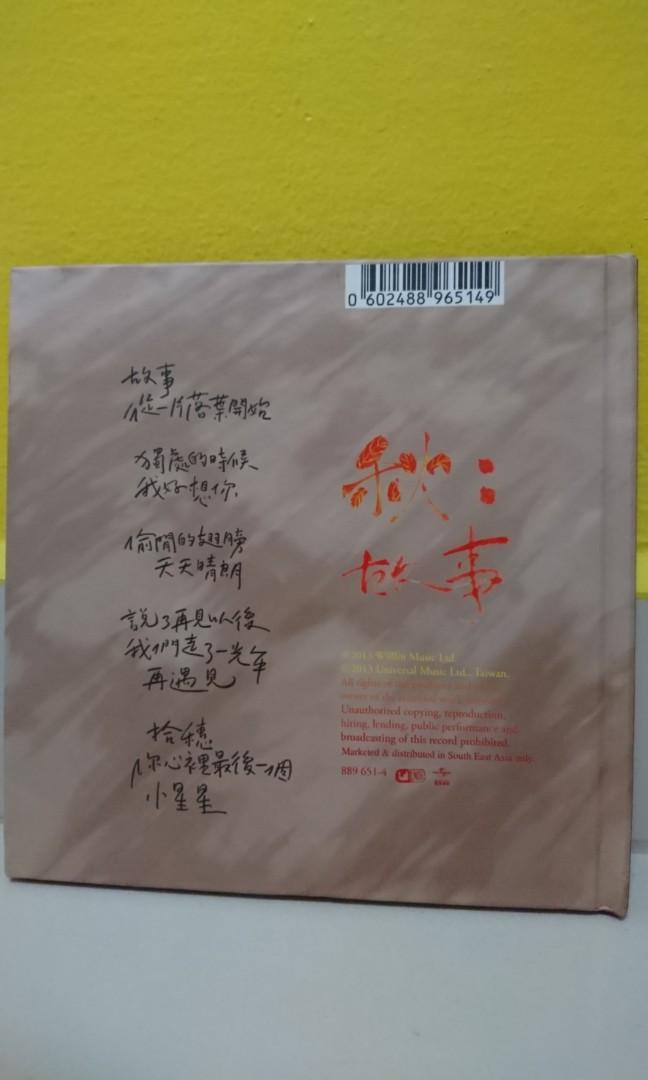 0 602488 965149
故事
從一片落葉開始
獨處的時候
我好想你
偷閒的翅膀
天天晴朗
說了再見以後
我們走了一光年
再遇見
拾穗
你心裡最後一個
小星星
秋：
故事
℗2013 Willin Music Ltd.
©2013 Universal Music Ltd., Taiwan.
All rights of the producer and of the
owner of the recorded work reserved.
Unauthorized copying, reproduction,
hiring, lending, public performance and
broadcasting of this record prohibited.
Marketed & distributed in South East Asia only.
889 651-4